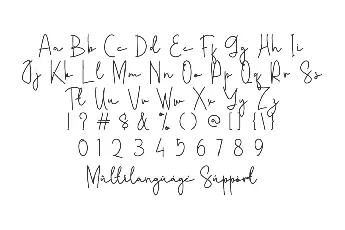 Aa Bb Cc Dd Ee Ff Gg Hh Ii
Jj Kk Ll Mm Nn Oo Pp Qq Rr Ss
Tt Uu Vv Ww Xx Yy Zz
| ? # $ & % ( ) @ [ ] { \ }
0 1 2 3 4 5 6 7 8 9
Multilanguage Support